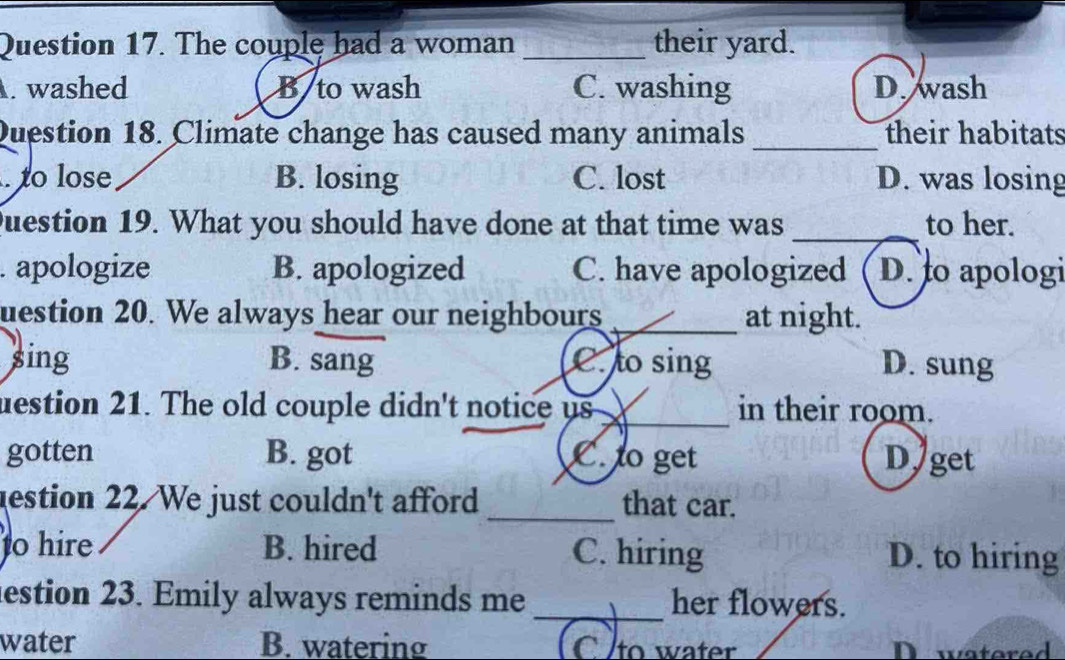 Question 17. The couple had a woman ________ their yard.
A. washed B. to wash C. washing D. wash
Question 18. Climate change has caused many animals ________ their habitats
. to lose B. losing C. lost D. was losing
Question 19. What you should have done at that time was ________ to her.
. apologize B. apologized C. have apologized D. to apologi
uestion 20. We always hear our neighbours ________ at night.
sing B. sang C. to sing D. sung
uestion 21. The old couple didn't notice us ________ in their room.
gotten B. got C. to get D. get
uestion 22. We just couldn't afford ________ that car.
to hire B. hired C. hiring D. to hiring
estion 23. Emily always reminds me ________ her flowers.
water B. watering C. to water D. watered